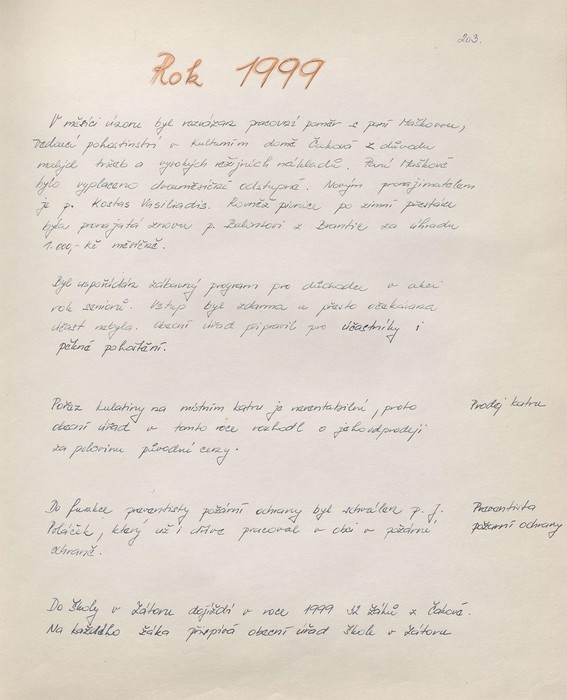 203.
Rok 1999
V měsíci únoru byl rozvázán pracovní poměr s paní Maškovou,
vedoucí pohostinství v kulturním domě Čaková z důvodu
malých tržeb a vysokých režijních nákladů. Paní Maškové
bylo vyplaceno dvouměsíční odstupné. Novým pronajimatelem
je p. Kostas Vasiliadis. Rovněž pivnice po zimní přestávce
byla pronajatá znovu p. z Brantic za úhradu
1.000,- Kč měsíčně.
Byl uspořádán zábavný program pro důchodce v akci
rok seniorů. Vstup byl zdarma a přesto očekávaná
účast nebyla. Obecní úřad připravil pro účastníky i
pěkné pohoštění.
Pořez kulatiny na místním katru je nerentabilní, proto
Prodej katru
obecní úřad v tomto roce rozhodl o jeho odprodeji
za polovinu původní ceny.
Do funkce preventisty požární ochrany byl schválen p. J.
Preventista
Poláček, který už i dříve pracoval v obci v požární
požární ochrany
ochraně.
Do školy v Zátoru dojíždí v roce 1999 32 žáků z Čakové.
Na každého žáka přispívá obecní úřad škole v Zátoru